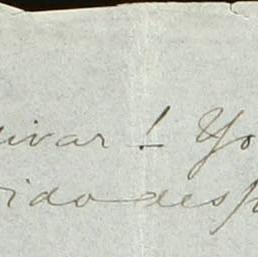 ivar! Yo
ido desp